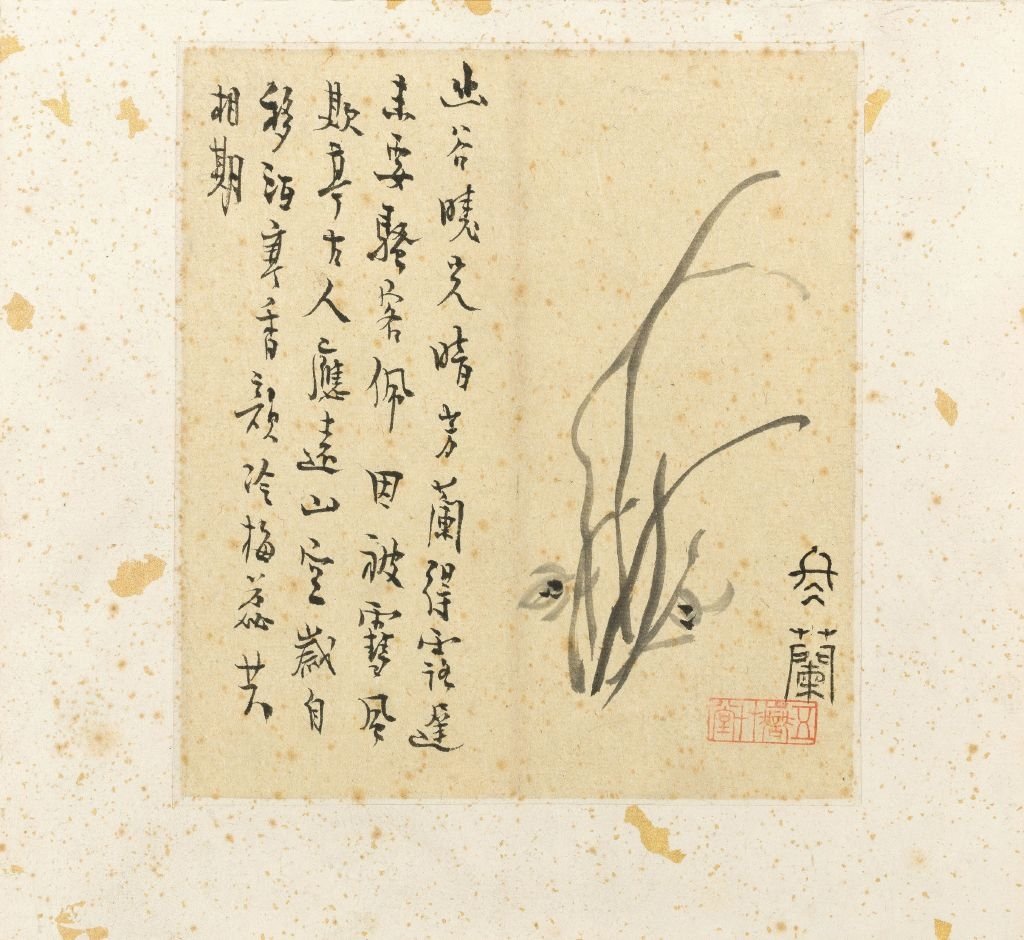 冬蘭
幽谷曉光晴芳蘭得露遲
未要騷客佩因被雪風
欺古人應遠山空歲自
移酒寒香韻冷梅蕊共
相期